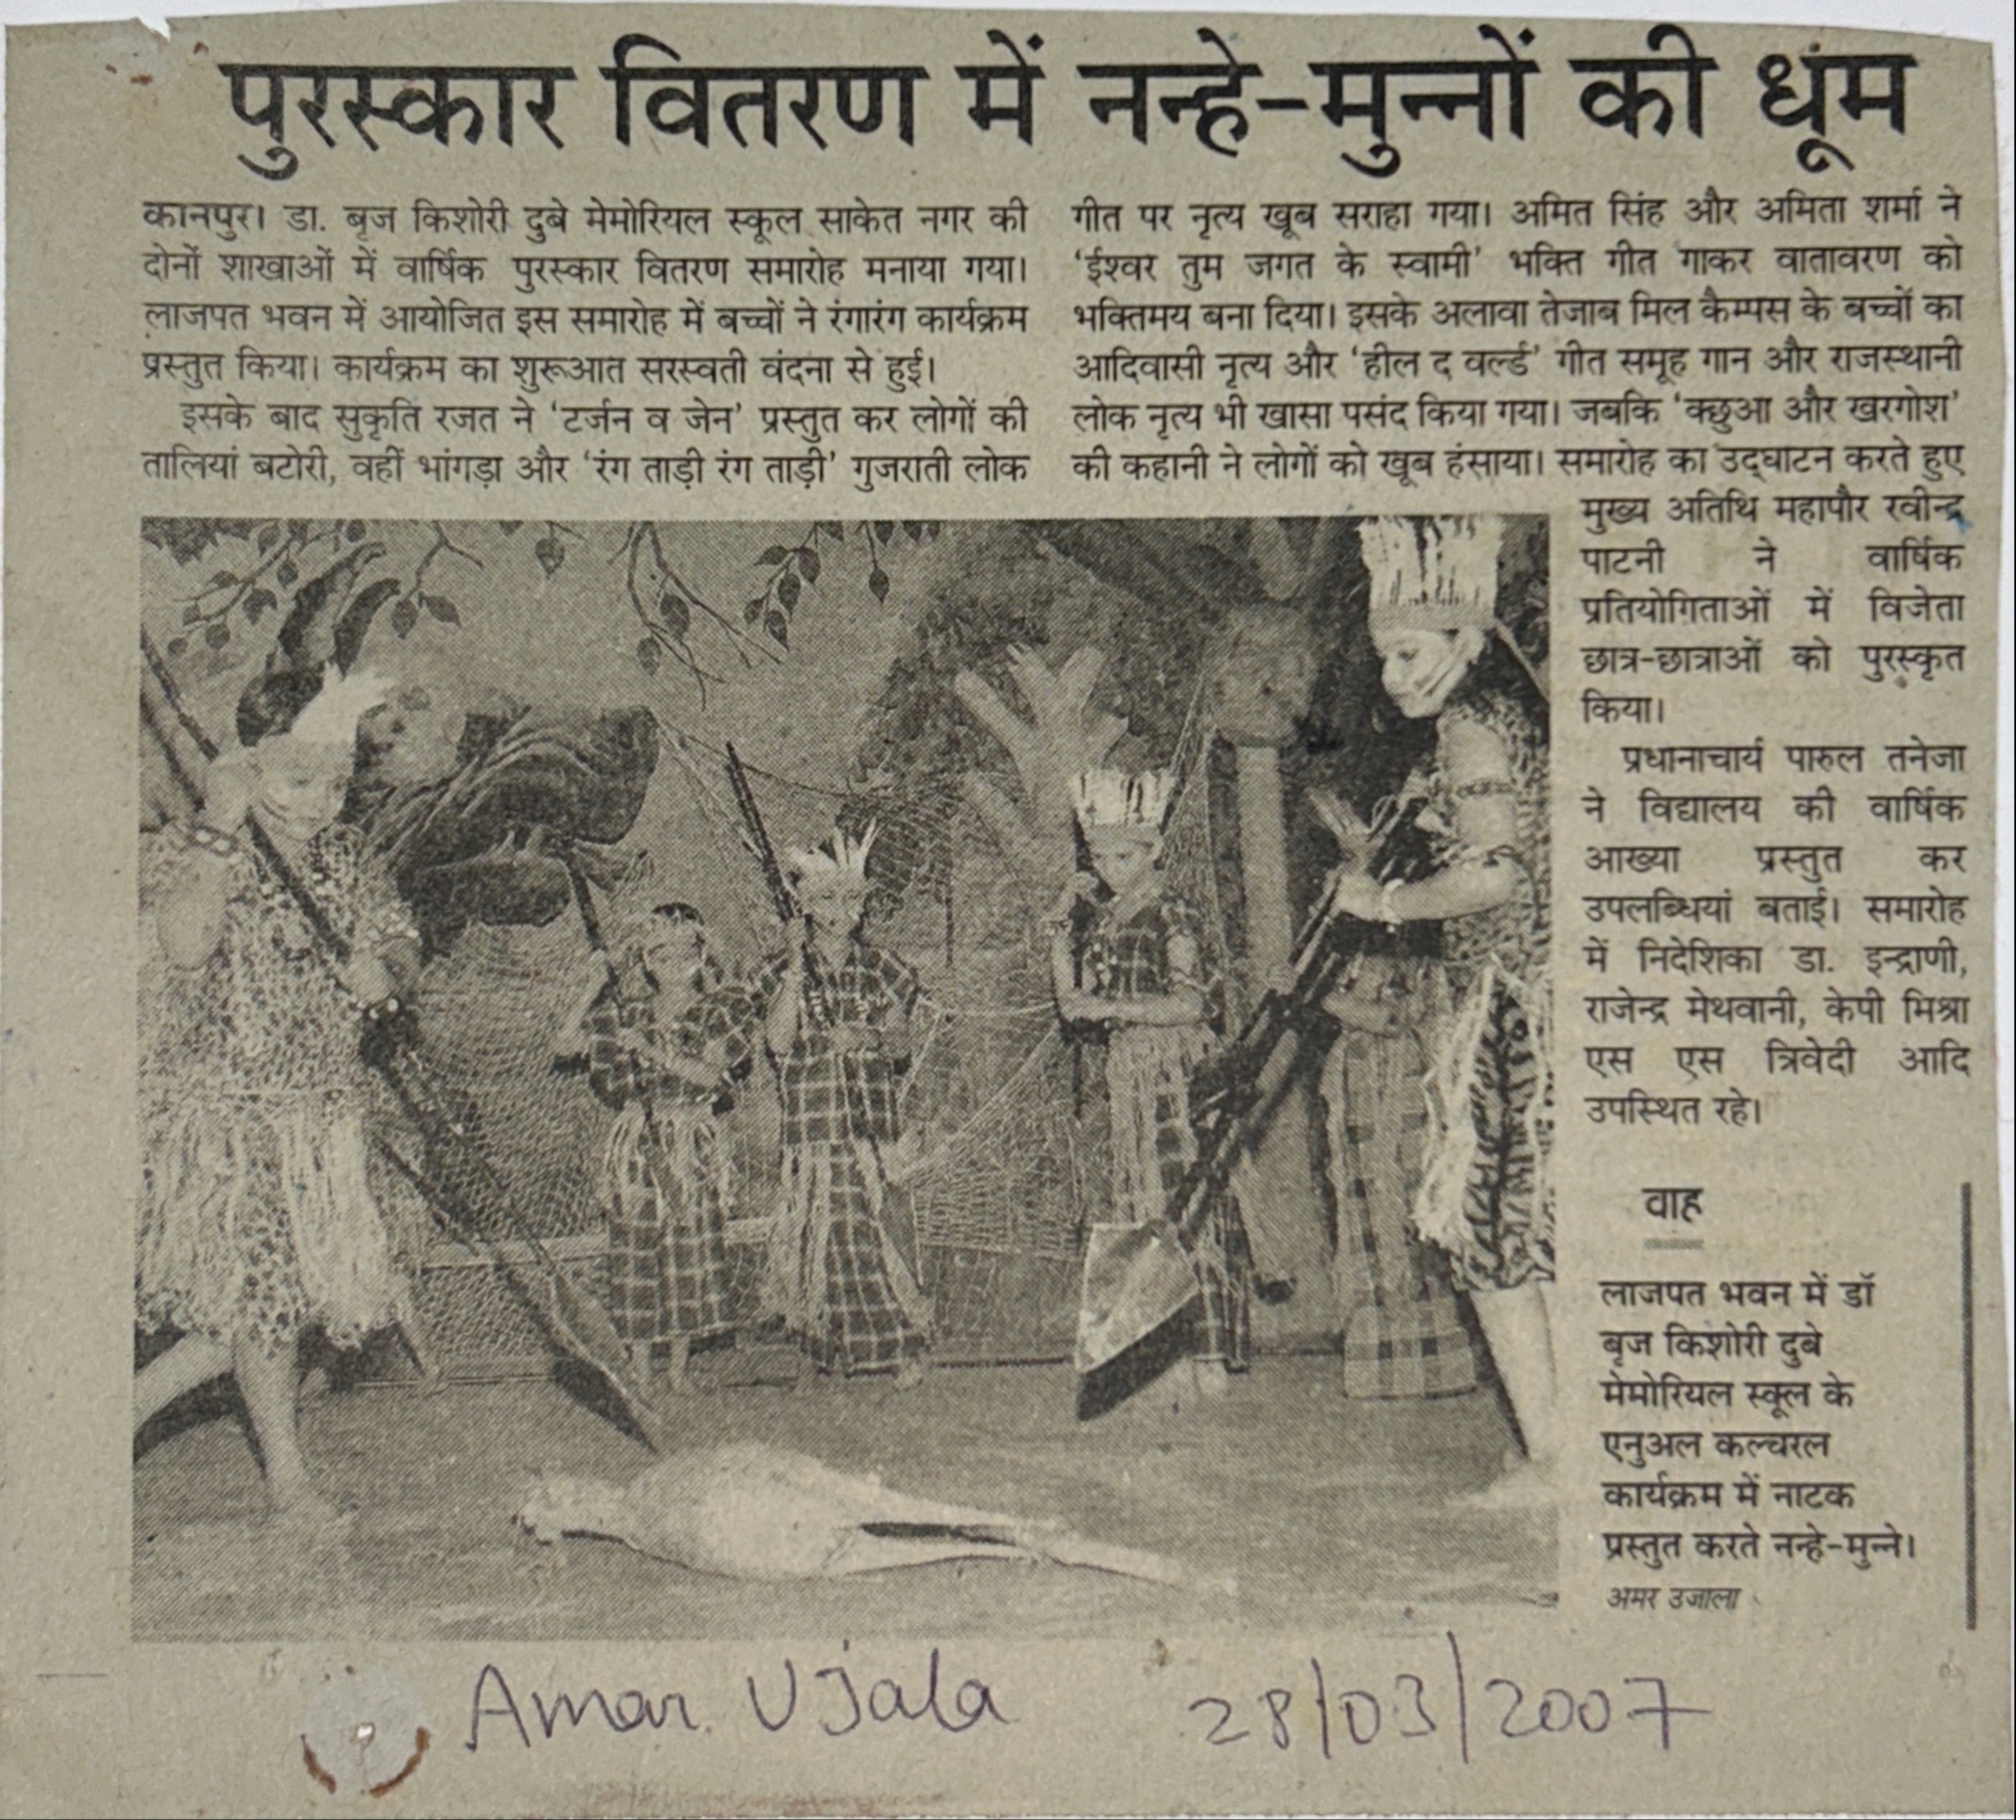 पुरस्कार वितरण में नन्हे-मुन्नों की धूम
कानपुर। डा. बृज किशोरी दुबे मेमोरियल स्कूल साकेत नगर की
दोनों शाखाओं में वार्षिक पुरस्कार वितरण समारोह मनाया गया।
लाजपत भवन में आयोजित इस समारोह में बच्चों ने रंगारंग कार्यक्रम
प्रस्तुत किया। कार्यक्रम का शुरूआत सरस्वती वंदना से हुई।
इसके बाद सुकृति रजत ने ‘टर्जन व जेन’ प्रस्तुत कर लोगों की
तालियां बटोरी, वहीं भांगड़ा और ‘रंग ताड़ी रंग ताड़ी’ गुजराती लोक
गीत पर नृत्य खूब सराहा गया। अमित सिंह और अमिता शर्मा ने
‘ईश्वर तुम जगत के स्वामी’ भक्ति गीत गाकर वातावरण को
भक्तिमय बना दिया। इसके अलावा तेजाब मिल कैम्पस के बच्चों का
आदिवासी नृत्य और ‘हील द वर्ल्ड’ गीत समूह गान और राजस्थानी
लोक नृत्य भी खासा पसंद किया गया। जबकि ‘क्छुआ और खरगोश’
की कहानी ने लोगों को खूब हंसाया। समारोह का उद्घाटन करते हुए
मुख्य अतिथि महापौर रवीन्द्र
पाटनी ने वार्षिक
प्रतियोगिताओं में विजेता
छात्र-छात्राओं को पुरस्कृत
किया।
प्रधानाचार्य पारुल तनेजा
ने विद्यालय की वार्षिक
आख्या प्रस्तुत कर
उपलब्धियां बताई। समारोह
में निदेशिका डा. इन्द्राणी,
राजेन्द्र मेथवानी, केपी मिश्रा
एस एस त्रिवेदी आदि
उपस्थित रहे।
वाह
लाजपत भवन में डॉ
बृज किशोरी दुबे
मेमोरियल स्कूल के
एनुअल कल्चरल
कार्यक्रम में नाटक
प्रस्तुत करते नन्हे-मुन्ने।
अमर उजाला
Amar Ujala 28/03/2007